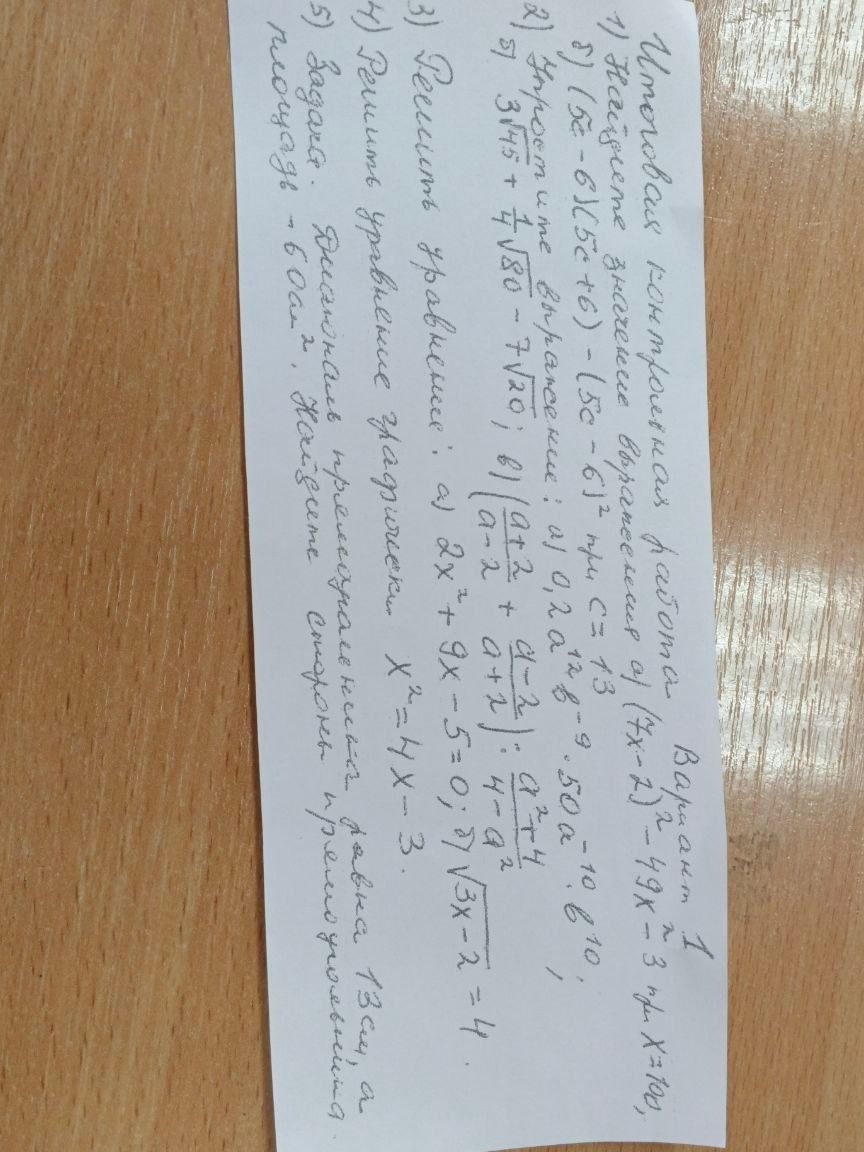 Итоговая контрольная работа Вариант 1
1) Найдите значение выражения а) (7x-2)² - 49x² - 3 при x=100;
б) (5c-6)(5c+6) - (5c-6)² при c=13
2) Упростите выражение: а) 0,2a¹²b⁻⁹ · 50a⁻¹⁰ · b¹⁰;
б) 3√45 + 1/4√80 - 7√20; в) ((a+2)/(a-2) + (a-2)/(a+2)) : (a²+4)/(4-a²)
3) Решить уравнение: а) 2x² + 9x - 5 = 0; б) √(3x-2) = 4.
4) Решить уравнение графически x² = 4x - 3.
5) Задача. Диагональ прямоугольника равна 13 см, а
площадь - 60 см². Найдите стороны прямоугольника.